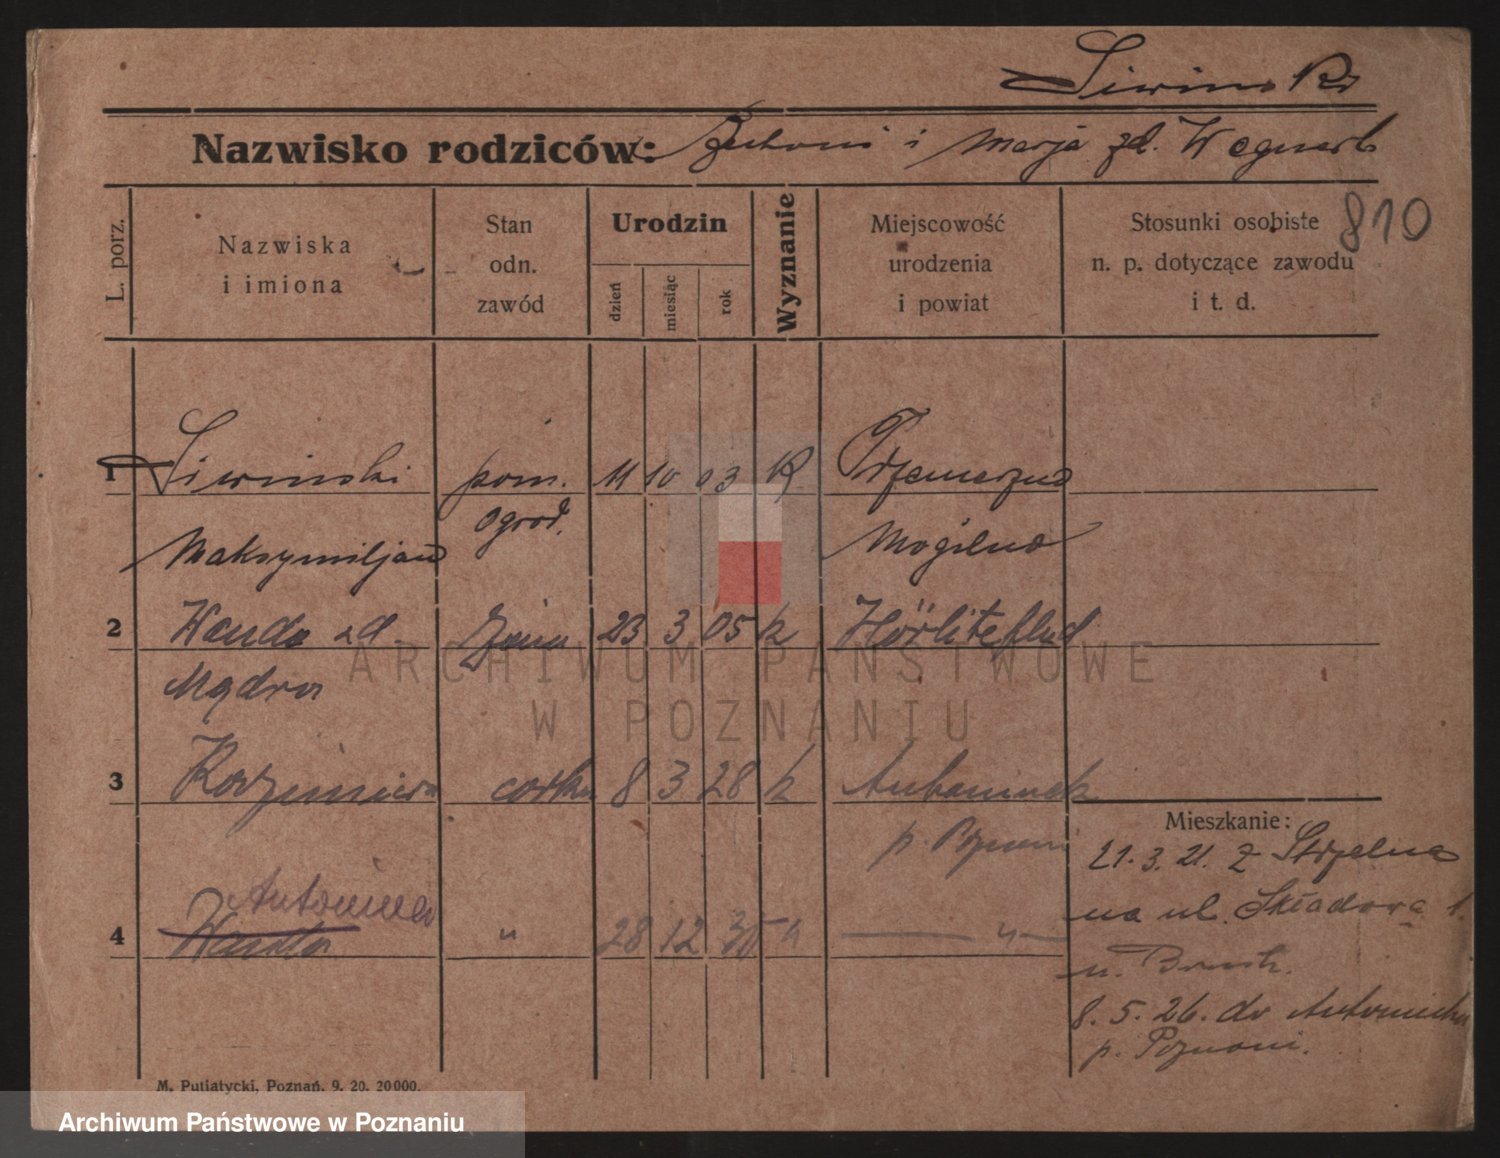 Siwinski
Nazwisko rodziców: Antoni i Marja zd. Wegner
810
L. porz.
Nazwiska i imiona
Stan odn. zawód
Urodzin
dzień
miesiąc
rok
Wyznanie
Miejscowość urodzenia i powiat
Stosunki osobiste n. p. dotyczące zawodu i t. d.
1 Siwinski pom. 11 10 03 K
ogrod.
Maksymiljan Mogilno
2 Wanda zd. żona 23 3 05 k
Mądra
3 Kazimiera corka 8 3 28 k Antoninek
p. Poznań
Mieszkanie:
21. 3. 21. z Strzelna
na ul. Składowa 1.
u.
8. 5. 26. do Antoninka
p. Poznani.
Antonina
4 Wanda " 28 12 30 " — " —
M. Putiatycki, Poznań. 9. 20. 20000.
ARCHIWUM PAŃSTWOWE
W POZNANIU
Archiwum Państwowe w Poznaniu